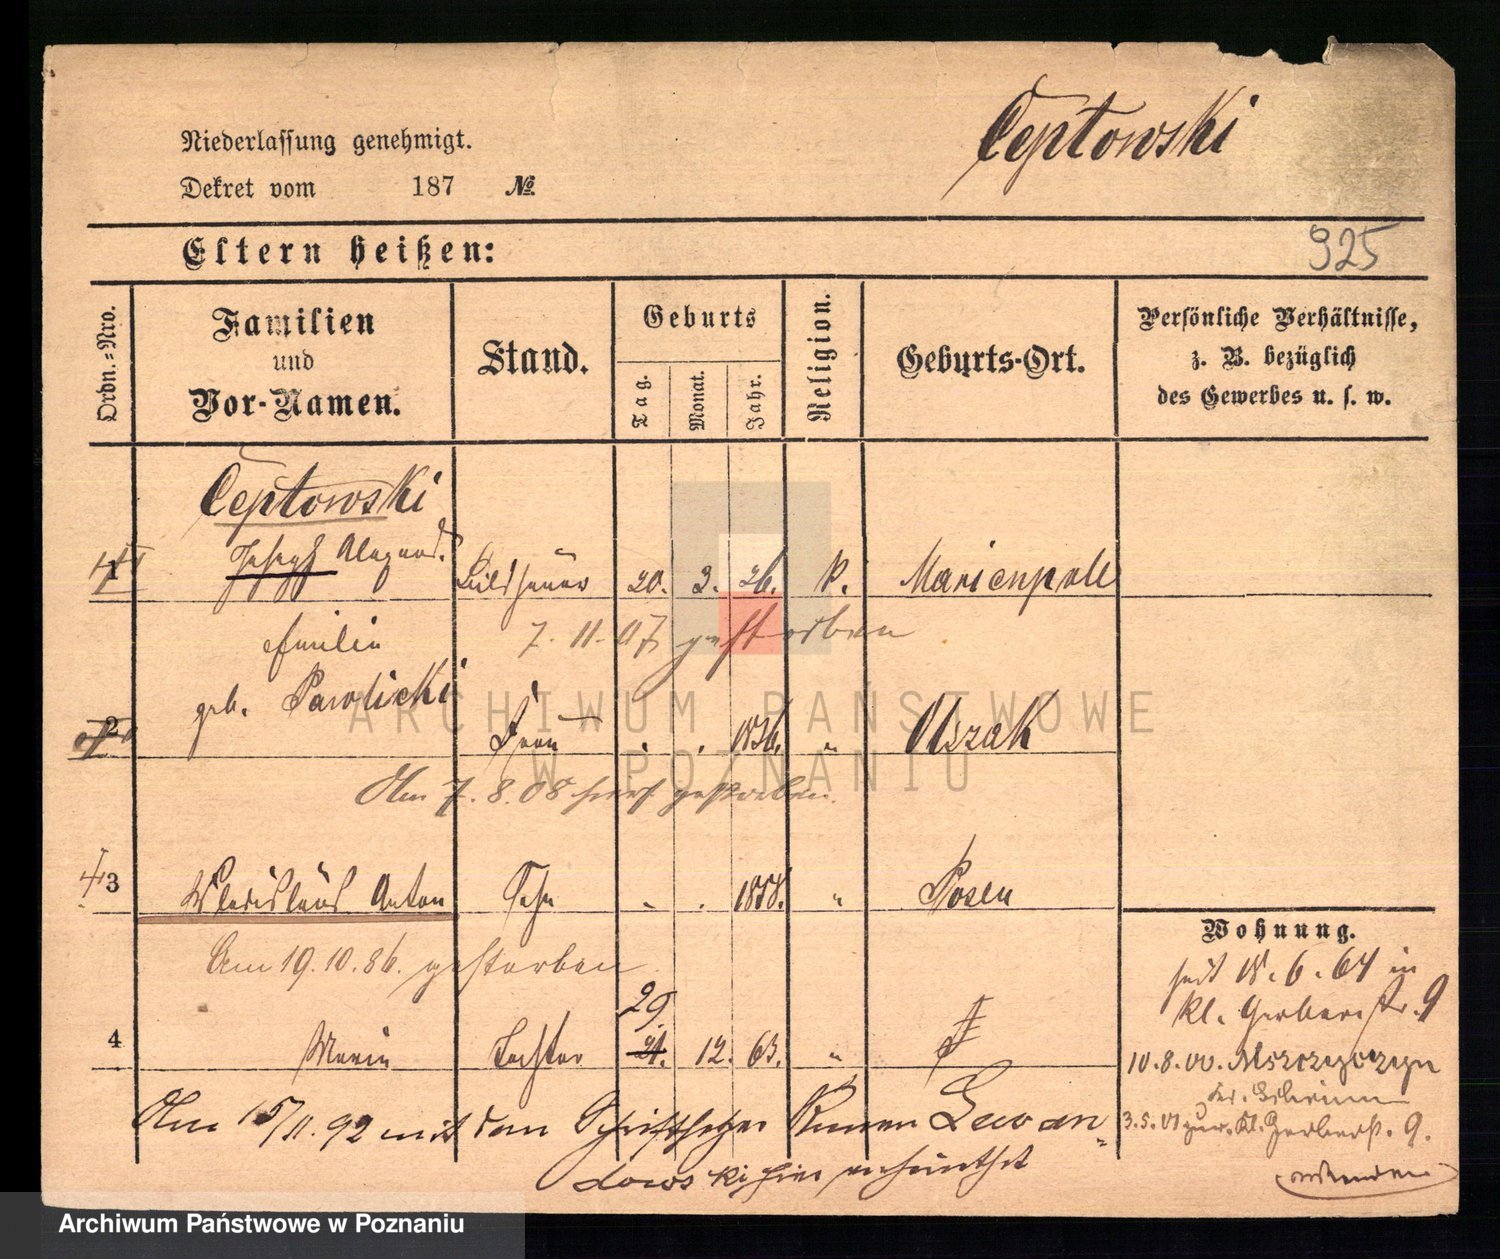 Niederlassung genehmigt.
Dekret vom 187 No.
Ceptowski
925
Eltern heißen:
Ordn.-Nro.
Familien und Vor-Namen.
Stand.
Geburts
Tag.
Monat.
Jahr.
Religion.
Geburts-Ort.
Persönliche Verhältnisse,
z. B. bezüglich
des Gewerbes u. s. w.
Ceptowski
1 Joseph Bildhauer 20. 3. 26. k. Marienpoll
Emilie 7. 11. 07 gestorben
geb. Pawlicki
2 Frau . . 1836. "
Am 7. 8. 08 hier gestorben.
3 Wladislaus Anton Sohn . . 1858. " Posen
Am 19. 10. 86. gestorben
29
4 Maria Tochter 21. 12. 63. "
Am 15/11. 92 mit dem Schriftsetzer Roman Lewan=
dowski hier verheirathet
Wohnung.
seit 18. 6. 64 in
Kl. Gerberstr. 9
10. 8. 00.
3. 5. 01 zur. Kl. Gerberst. 9.
wenden
ARCHIWUM PAŃSTWOWE
W POZNANIU
Archiwum Państwowe w Poznaniu